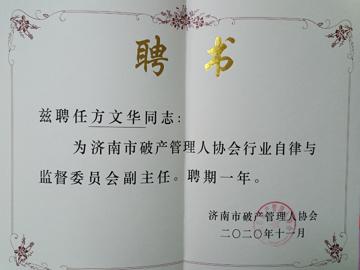 聘书
兹聘任方文华同志：
为济南市破产管理人协会行业自律与
监督委员会副主任。聘期一年。
济南市破产管理人协会
二〇二〇年十一月